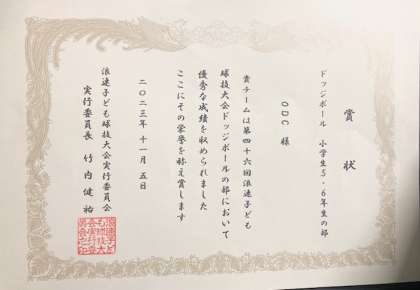 賞状
ドッジボール 小学生5・6年生の部
ODC 様
貴チームは第四十六回浪速子ども
球技大会ドッジボールの部において
優秀な成績を収められました
ここにその栄誉を称え賞します
二〇二三年十一月五日
浪速子ども球技大会実行委員会
実行委員長 竹内健祐